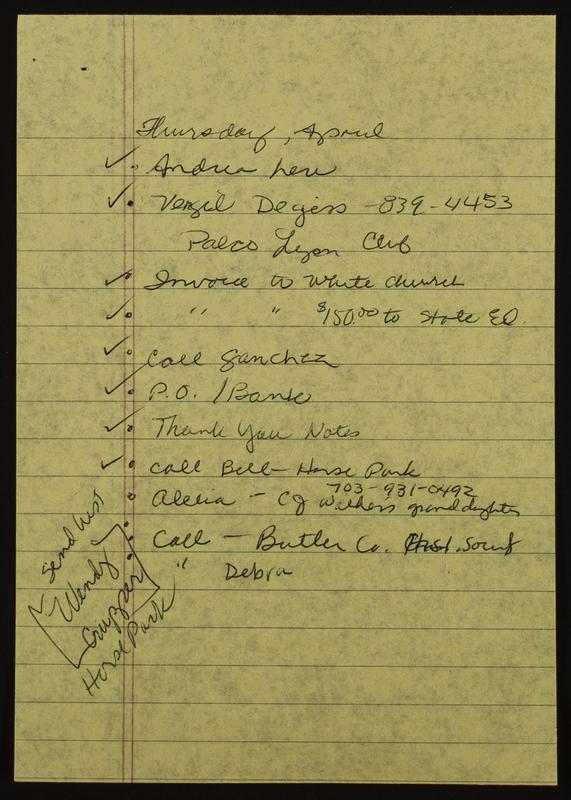 Thursday, April
Andrea here
Vergil Degiss - 839-4453
Palco Lyon Club
Invoice to White Church
" " $150.00 to State Ed.
Call Sanchez
P.O. / Bank
Thank You Notes
Call Bill - Horse Park
703-931-0492
Alelia - CJ Walkers granddaughter
Call - Butler Co. Hist. Society
" Debra
Send list
Wendy
Horse Park